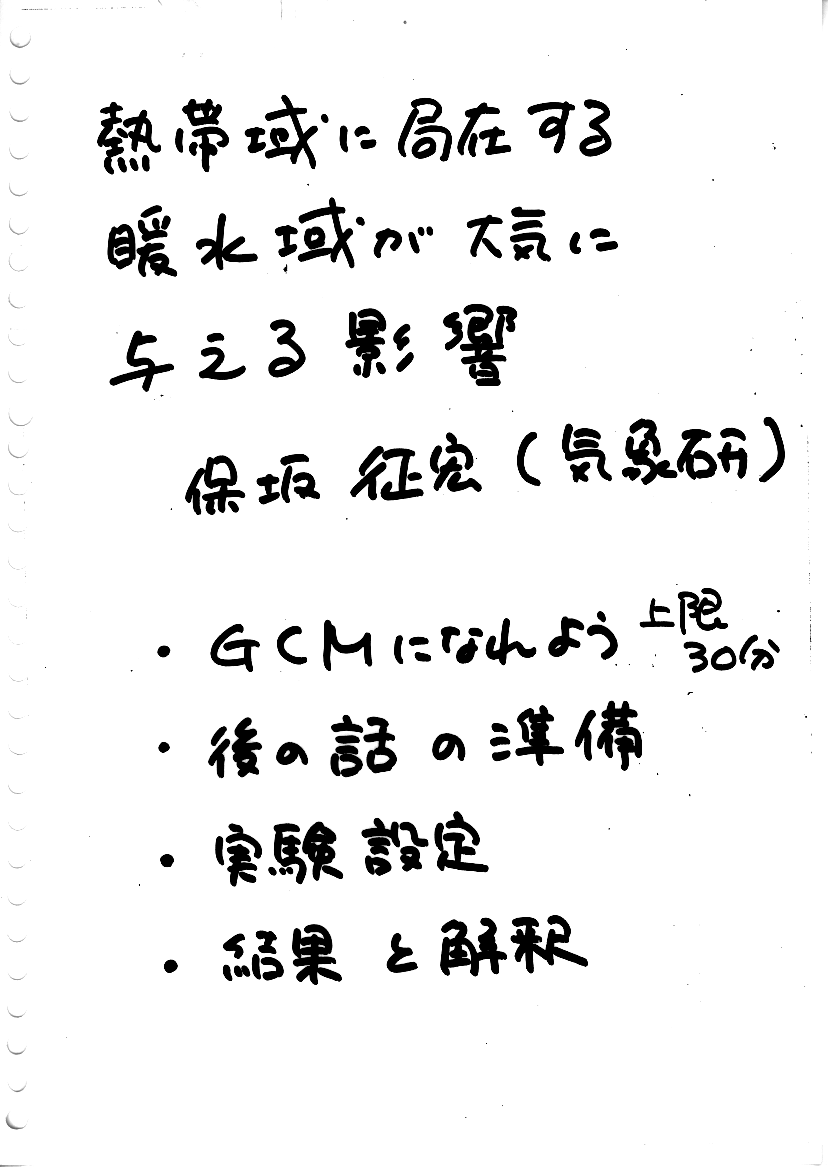 熱帯域に局在する
暖水域が大気に
与える影響
保坂 征宏(気象研)
・GCMになれよう 上限
30分
・後の話の準備
・実験設定
・結果と解釈